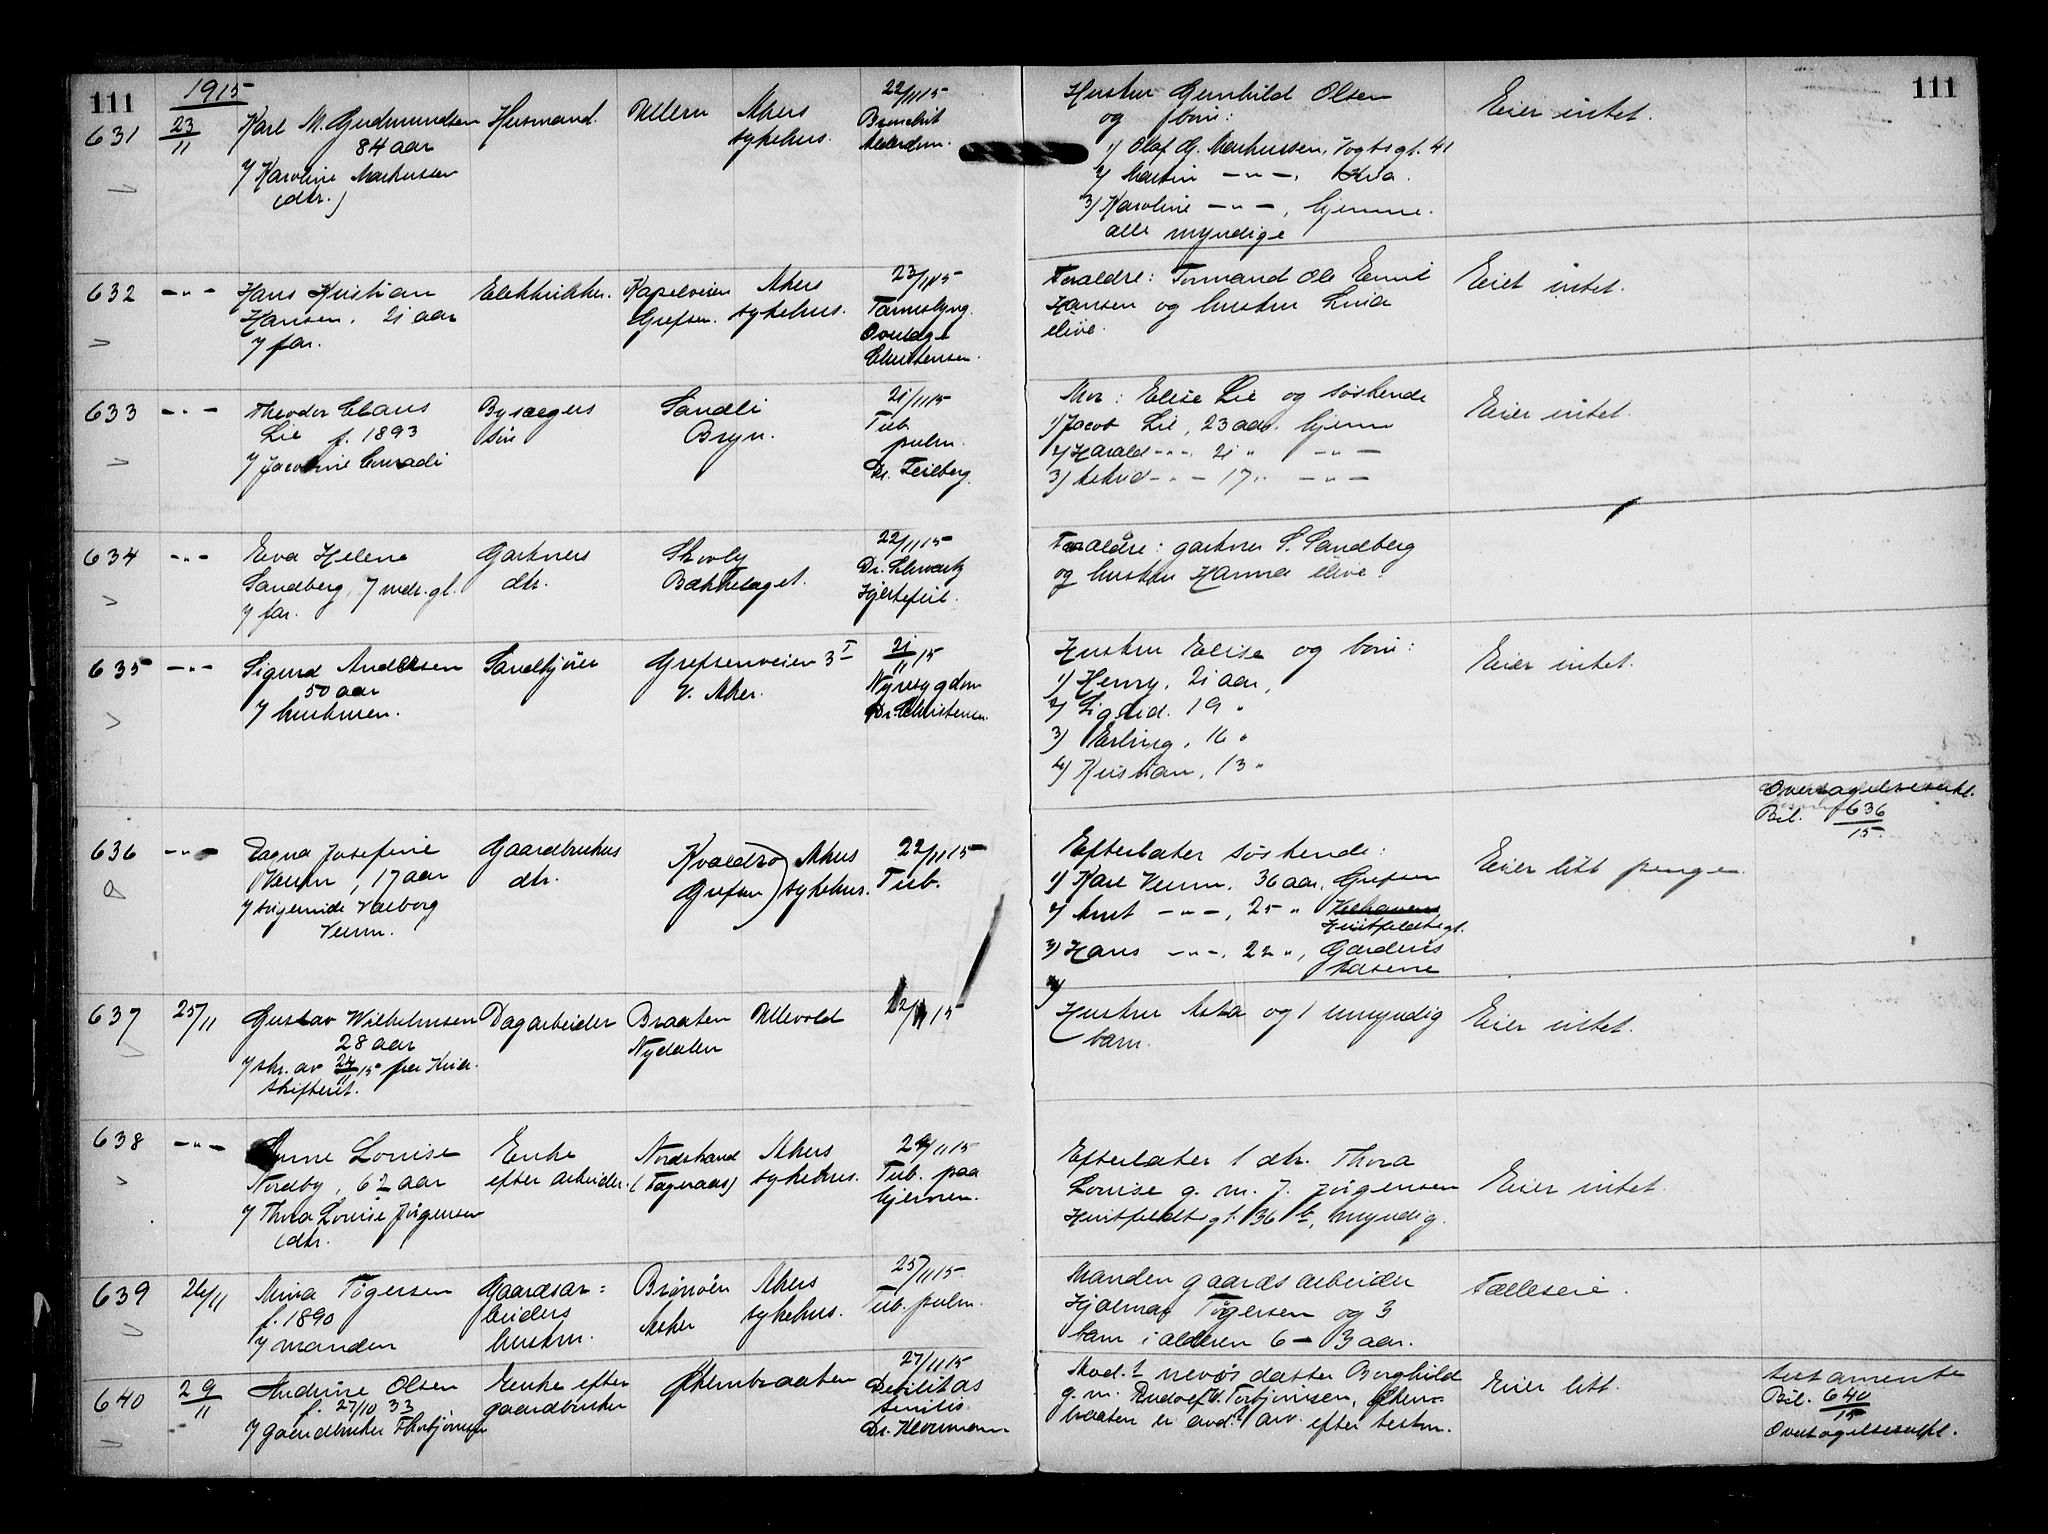 111
1915
111
631
23/11
Karl M. Gudmundsen
84 aar
v/ Karoline Markussen
(dtr.)
Husmand.
Ullern
Akers
sykehus.
22/11 15
Bronchit
Alderdom.
Hustru Gunhild Olsen
og børn:
1) Olaf G. Markussen, Vogtsgt. 41
2) Martin —"—, Kr.a.
3) Karoline —"—, hjemme.
alle myndige
Eier intet.
632
—"—
Hans Kristian
Hansen, 21 aar
v/ far.
Elektriker.
Kapelveien
Grefsen.
Akers
sykehus.
23/11 15
Tarmslyng.
Overlæge
Christensen.
Forældre: Formand Ole Emil
Hansen og hustru Lina
ilive.
Eiet intet.
633
—"—
Theodor Claus
Lie f. 1893
v/ Jacobine Conradi
Bysælgers
søn
Sandli
Bryn.
21/11 15
Tub.
pulm.
Dr. Feilberg.
Mor: Elise Lie og søskende
1) Jacob Lie, 23 aar. hjemme
2) Harald —"— 21 " —"—
3) Astrid —"— 17 " —"—
Eier intet.
634
—"—
Eva Helene
Sandberg, 7 mdr. gl.
v/ far.
Gartners
dtr.
Skovly
Bækkelaget.
22/11 15
Dr. Schwartz
Hjertefeil.
Forældre: gartner S. Sandberg
og hustru Hanna ilive.
635
—"—
Sigurd Andersen
50 aar
v/ hustruen.
Sandkjører
Grefsenveien 3 I
V. Aker.
21/11 15
Nyresygdom
Dr. Christensen.
Hustru Elise og børn:
1) Henry, 21 aar,
2) Sigrid. 19 "
3) Erling, 16 "
4) Kristian, 13 "
Eier intet.
636
—"—
Dagna Josefine
Venn, 17 aar
v/ svigerinde Valborg
Venn.
Gaardbrukers
dtr.
Kvaldro
Grefsen
Akers
sykehus.
22/11 15
Tub.
Efterlater søskende:
1) Karl Venn, 36 aar, Grefsen
2) Arnt —"—, 25 " Welhavens
Huitfeldtsgt.
3) Hans —"—, 22 ", Gardens
kaserne
4)
Eier litt penge.
Overtagelseserkl.
Bil. 636/15.
637
25/11
Gustav Wilhelmsen
28 aar
v/ skr. av 24/11 15 fra Kr.a
skifteret.
Dagarbeider
Braaten
Nydalen
Ullevold
22/11 15
Hustru Asta og 1 umyndig
barn.
Eier intet.
638
—"—
Anne Louise
Nordby, 62 aar
v/ Thora Louise Jørgensen
(dtr.
Enke
efter arbeider.
Nordstrand
(Fageraas)
Akers
sykehus.
24/11 15
Tub. paa
hjernen.
Efterlater 1 dtr. Thora
Louise g. m. J. Jørgensen
Huitfeldtsgt. 36 b, myndig.
Eier intet.
639
26/11
Mina Tøgersen
f. 1890
v/ manden
Gaardsar=
beiders
hustru.
Brønøen
Asker
Akers
sykehus.
25/11 15
Tub. pulm.
Manden gaardsarbeider
Hjalmar Tøgersen og 3
barn i alderen 6 – 3 aar.
Fælleseie.
640
29/11
Andrine Olsen
f. 27/10 33
v/ gaardbruker Thorbjørnsen
Enke efter
gaardbruker
Østernbraaten
27/11 15
Debilitas
senilis
Dr. Heormann
Avd.s nevøs datter Borghild
g. m. Rudolf Torbjørnsen, Østern-
braaten er avd.s arv. efter testm.
Eier litt.
testamente
Bil. 640/15
Overtagelseserkl.